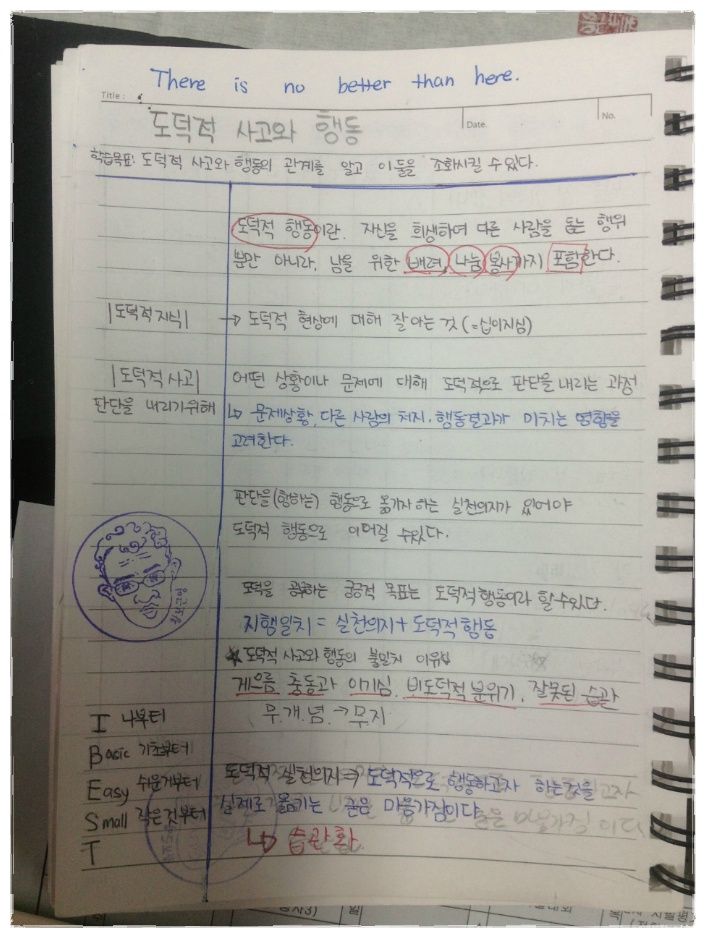 There is no better than here.
Title :
도덕적 사고와 행동
Date.
No.
학습목표: 도덕적 사고와 행동의 관계를 알고 이 둘을 조화시킬 수 있다.
도덕적 행동이란. 자신을 희생하여 다른 사람을 돕는 행위
뿐만 아니라, 남을 위한 배려, 나눔 봉사까지 포함한다.
|도덕적 지식| → 도덕적 현상에 대해 잘 아는 것 (=십이지심)
|도덕적 사고| 어떤 상황이나 문제에 대해 도덕적으로 판단을 내리는 과정
판단을 내리기위해 ↳ 문제상황, 다른 사람의 처지·행동결과가 미치는 영향을
고려한다.
판단을(향하는) 행동으로 옮기자 하는 실천의지가 있어야
도덕적 행동으로 이어질 수있다.
도덕을 공부하는 궁극적 목표는 도덕적행동이라 할수있다.
지행일치 = 실천의지 + 도덕적 행동
★ 도덕적 사고와 행동의 불일치 이유
게으름 충동과 이기심. 비도덕적 분위기, 잘못된 습관
무.개.념. → 무지
I 나부터
Basic 기초부터
Easy 쉬운거부터
Small 작은것부터
T
도덕적 실천의지 ⇒ 도덕적으로 행동하고자 하는것을
실제로 옮기는 굳은 마음가짐이다
↳ 습관화